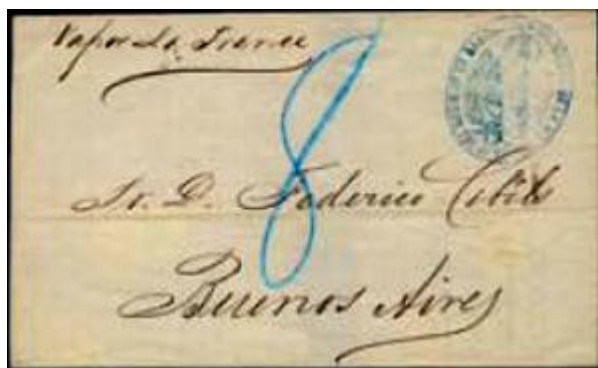 Vapor La France
8
Sr. D. Federico
Buenos Aires